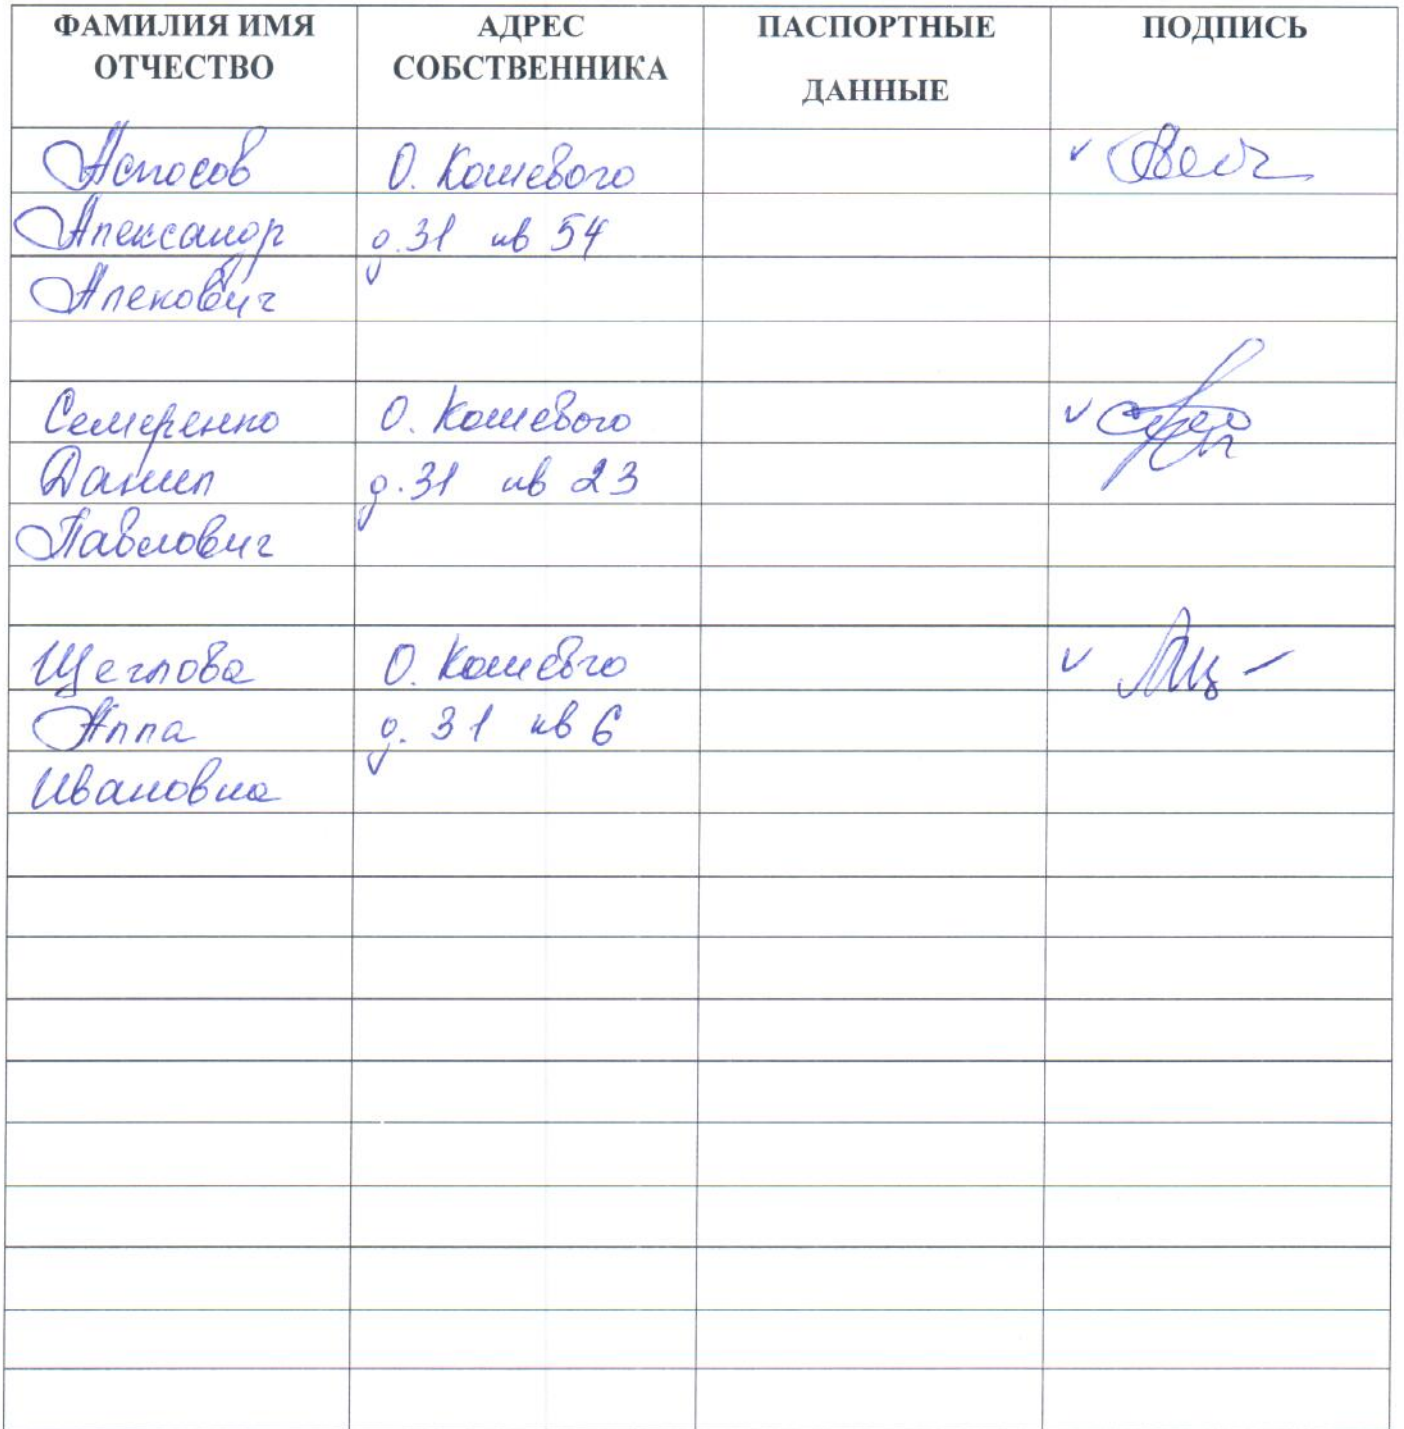 ФАМИЛИЯ ИМЯ ОТЧЕСТВО
АДРЕС СОБСТВЕННИКА
ПАСПОРТНЫЕ ДАННЫЕ
ПОДПИСЬ
О. Кошевого
Александр д.31 кв 54
Семеренко О. Кошевого
Данил д.31 кв 23
Павлович
Щеглова О. Кошевго
Анна д. 31 кв 6
Ивановна